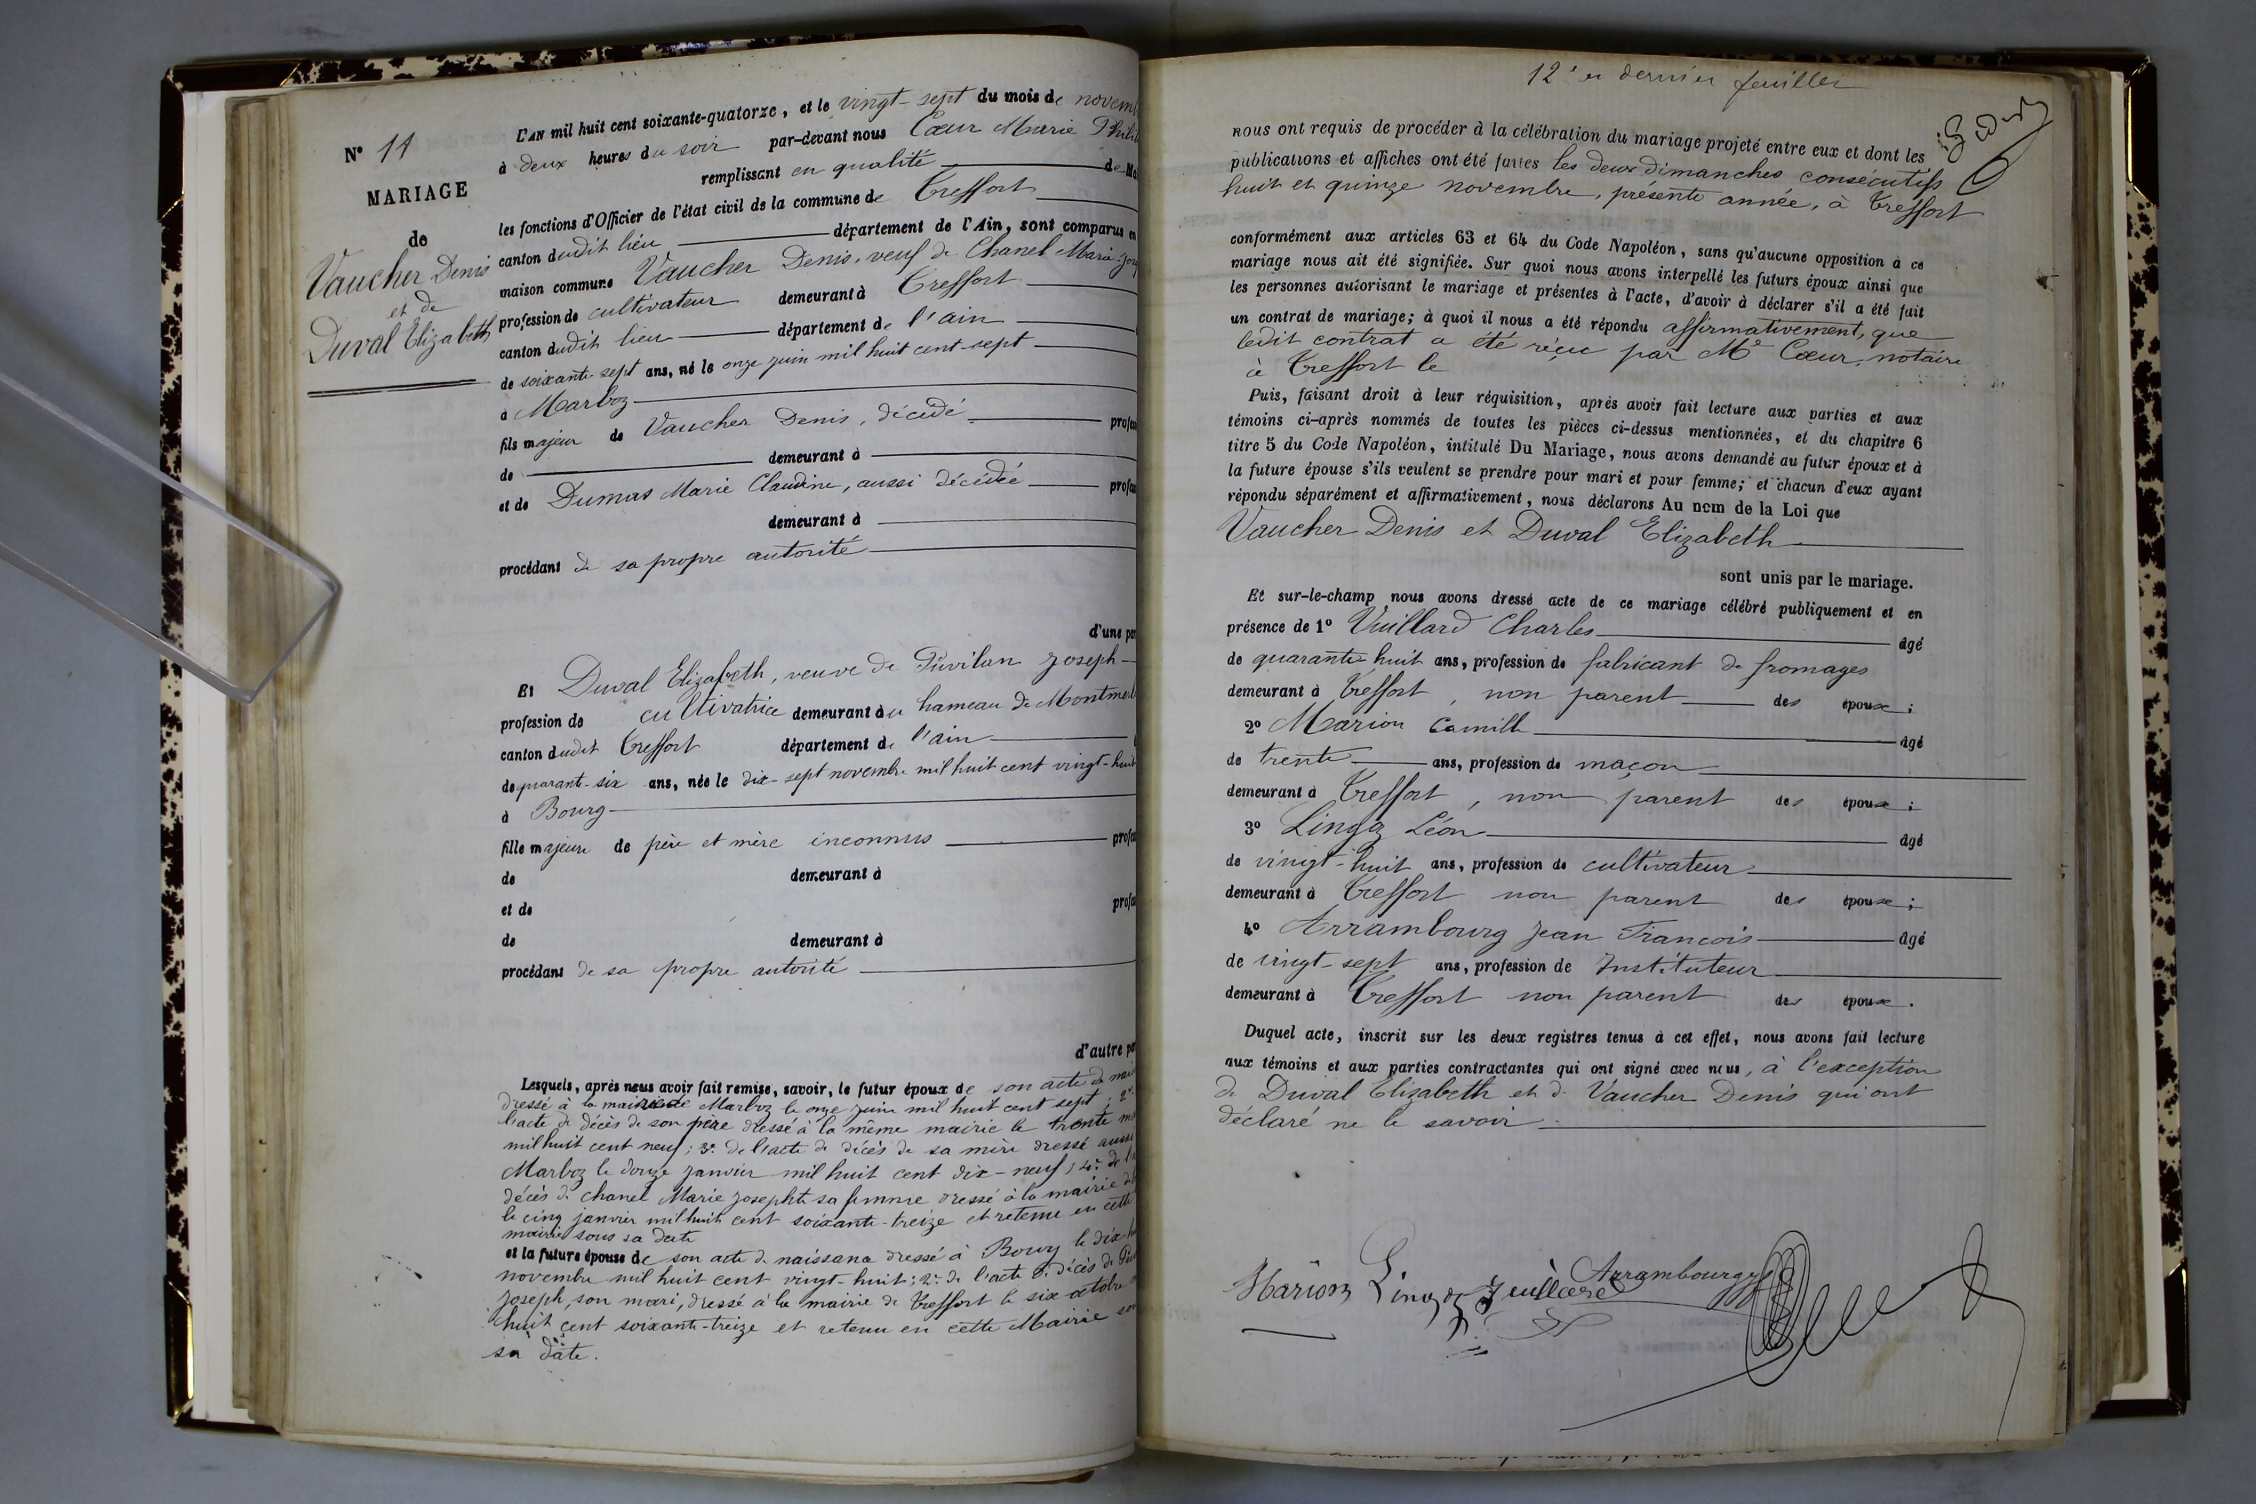 N° 11
MARIAGE
de
Vaucher Denis
et de
Duval Elizabeth
L'AN mil huit cent soixante-quatorze, et le vingt-sept du mois de novem
à deux heures du soir par-devant nous Cœur Marie Phili
remplissant en qualité de Ma
les fonctions d'Officier de l'état civil de la commune de Treffort
canton dudit lieu département de l'Ain, sont comparus en
maison commune Vaucher Denis, veuf de Chanel Marie Jose
profession de cultivateur demeurant à Treffort
canton dudit lieu département de l'ain
de soixante-sept ans, né le onze juin mil huit cent-sept
à Marboz
fils majeur de Vaucher Denis, décédé profes
de demeurant à
et de Dumas Marie Claudine, aussi décédée profes
demeurant à
procédant de sa propre autorité
d'une par
Et Duval Elizabeth, veuve de Joseph
profession de cultivatrice demeurant au hameau de Montmerl
canton dudit Treffort département de l'ain
de quarante-six ans, née le dix-sept novembre mil huit cent vingt-huit
à Bourg
fille majeure de père et mère inconnus profes
de demeurant à
et de profes
de demeurant à
procédant de sa propre autorité
d'autre par
Lesquels, après nous avoir fait remise, savoir, le futur époux de son acte de nais
dressé à la mairie de Marboz le onze juin mil huit cent sept; 2° de
l'acte de décès de son père dressé à la même mairie le trente m
mil huit cent neuf; 3° de l'acte de décès de sa mère dressé aussi
Marboz le douze janvier mil huit cent dix-neuf; 4° de l'a
décès de Chanel Marie Josephte sa femme dressé à la mairie de
le cinq janvier mil huit cent soixante-treize et retenu en cette
mairie sous sa date
et la future épouse de son acte de naissance dressé à Bourg le dix-hu
novembre mil huit cent vingt-huit; 2° de l'acte de décès de
Joseph, son mari, dressé à la mairie de Treffort le six octobre m
huit cent soixante-treize et retenu en cette Mairie sou
sa date.
12e et dernier feuillet
nous ont requis de procéder à la célébration du mariage projeté entre eux et dont les
publications et affiches ont été faites les deux Dimanches consécutifs
huit et quinze novembre, présente année, à Treffort
conformément aux articles 63 et 64 du Code Napoléon, sans qu'aucune opposition à ce
mariage nous ait été signifiée. Sur quoi nous avons interpellé les futurs époux ainsi que
les personnes autorisant le mariage et présentes à l'acte, d'avoir à déclarer s'il a été fait
un contrat de mariage; à quoi il nous a été répondu affirmativement, que
ledit contrat a été réçu par Me Cœur, notaire
à Treffort le
Puis, faisant droit à leur réquisition, après avoir fait lecture aux parties et aux
témoins ci-après nommés de toutes les pièces ci-dessus mentionnées, et du chapitre 6
titre 5 du Code Napoléon, intitulé Du Mariage, nous avons demandé au futur époux et à
la future épouse s'ils veulent se prendre pour mari et pour femme; et chacun d'eux ayant
répondu séparément et affirmativement, nous déclarons Au nom de la Loi que
Vaucher Denis et Duval Elizabeth
sont unis par le mariage.
Et sur-le-champ nous avons dressé acte de ce mariage célébré publiquement et en
présence de 1° Vuillard Charles âgé
de quarante-huit ans, profession de fabricant de fromages
demeurant à Treffort, non parent des époux;
2° Marion Camille âgé
de trente ans, profession de maçon
demeurant à Treffort, non parent des époux;
3° Lingoz Léon âgé
de vingt-huit ans, profession de cultivateur
demeurant à Treffort non parent des époux;
4° Arrambourg Jean François âgé
de vingt-sept ans, profession de Instituteur
demeurant à Treffort non parent des époux.
Duquel acte, inscrit sur les deux registres tenus à cet effet, nous avons fait lecture
aux témoins et aux parties contractantes qui ont signé avec nous, à l'exception
de Duval Elizabeth et de Vaucher Denis qui ont
déclaré ne le savoir.
Marion Lingoz Vuillard Arrambourg